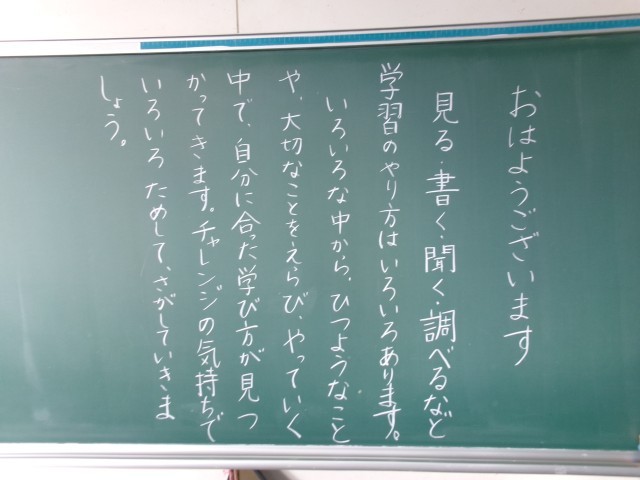 おはようございます
見る・書く・聞く・調べるなど
学習のやり方はいろいろあります。
いろいろな中から、ひつようなこと
や、大切なことをえらび、やっていく
中で、自分に合った学び方が見つ
かってきます。チャレンジの気持ちで
いろいろためして、さがしていきま
しょう。